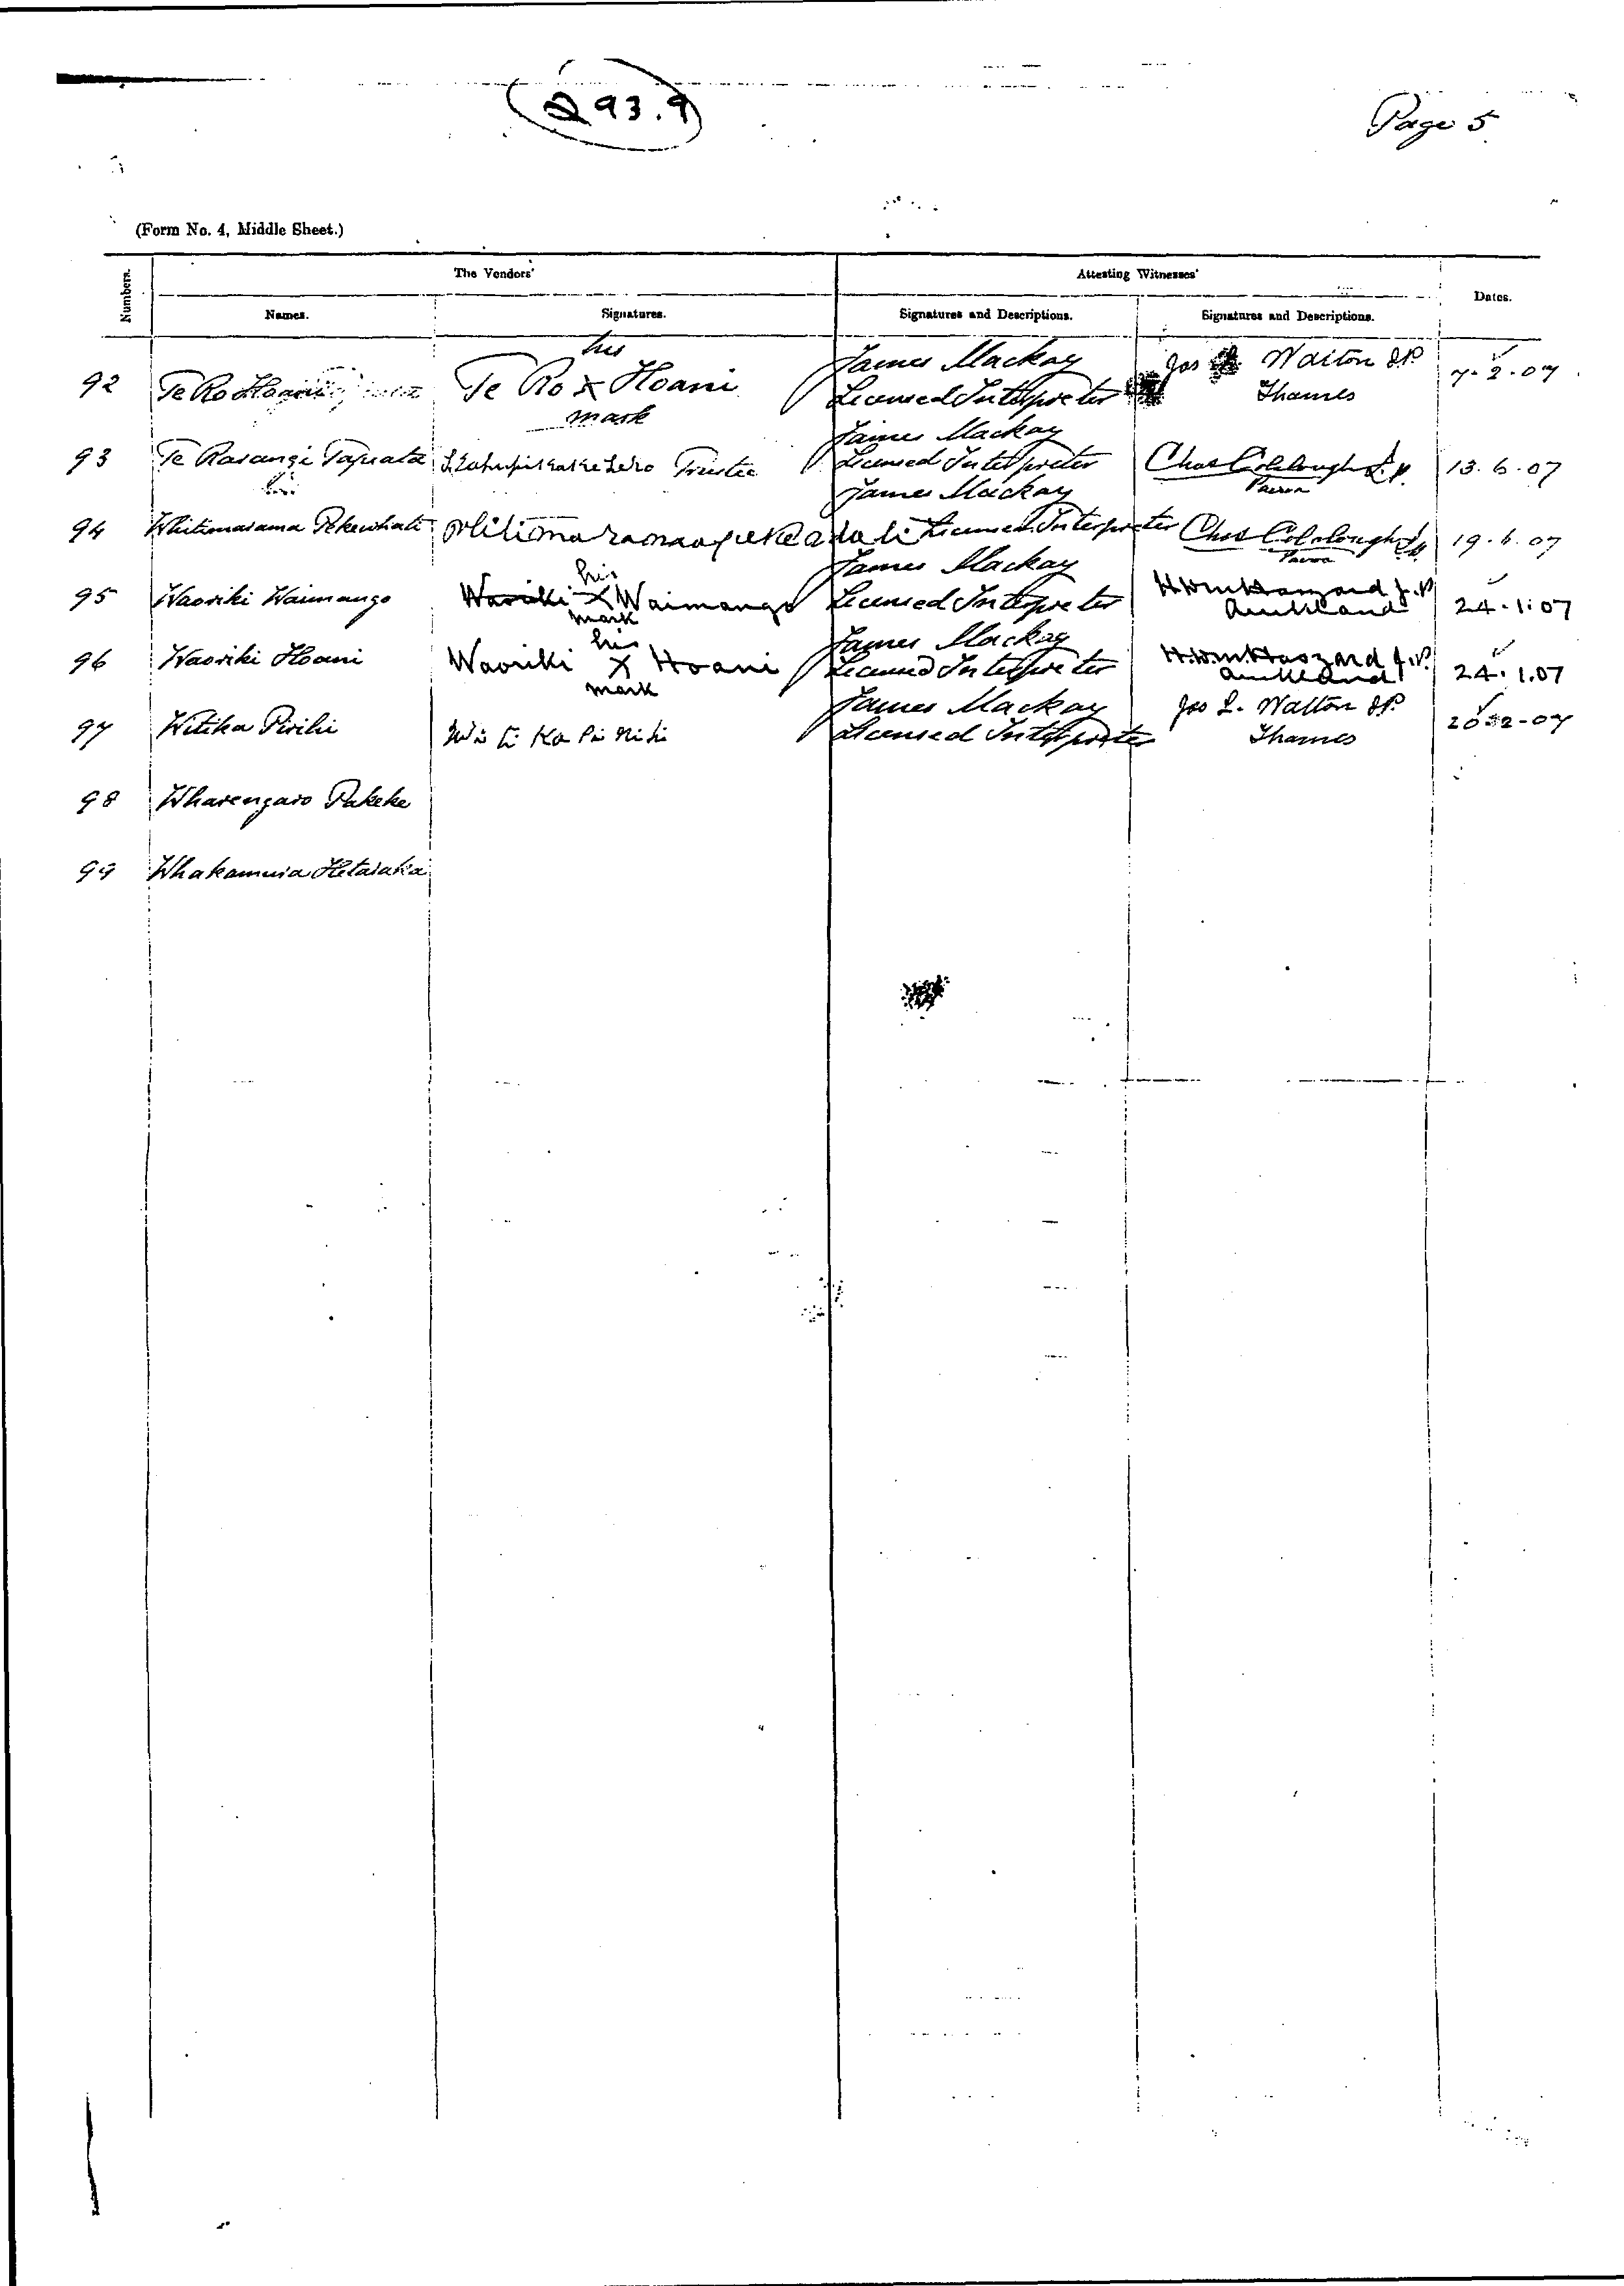 293.9
Page 5
(Form No. 4, Middle Sheet.)
Numbers. The Vendors' Attesting Witnesses' Dates.
Names. Signatures. Signatures and Descriptions. Signatures and Descriptions.
his
92 Te Ro Hoani Te Ro X Hoani James Mackay Jos Walton JP 7.2.07
mark Licensed Interpreter Thames
James Mackay
93 Te Rarangi Tapuata Trustee Licensed Interpreter Chas Colclough J.P. 13.6.07
Paeroa
James Mackay
94 Whitimarama Pekewhati Licensed Interpreter Chas Colclough 19.6.07
Paeroa
his James Mackay
95 Waoriki Waimango Waoriki X Waimango Licensed Interpreter J.P. 24.1.07
mark Auckland
his James Mackay
96 Waoriki Hoani Waoriki X Hoani Licensed Interpreter Haszard J.P. 24.1.07
mark Auckland
James Mackay Jos L. Walton JP
97 Witika Pirihi Wi ti Ka Pi Rihi Licensed Interpreter Thames
98 Wharengaro Pakeke
99 Whakamuia Hetaraka